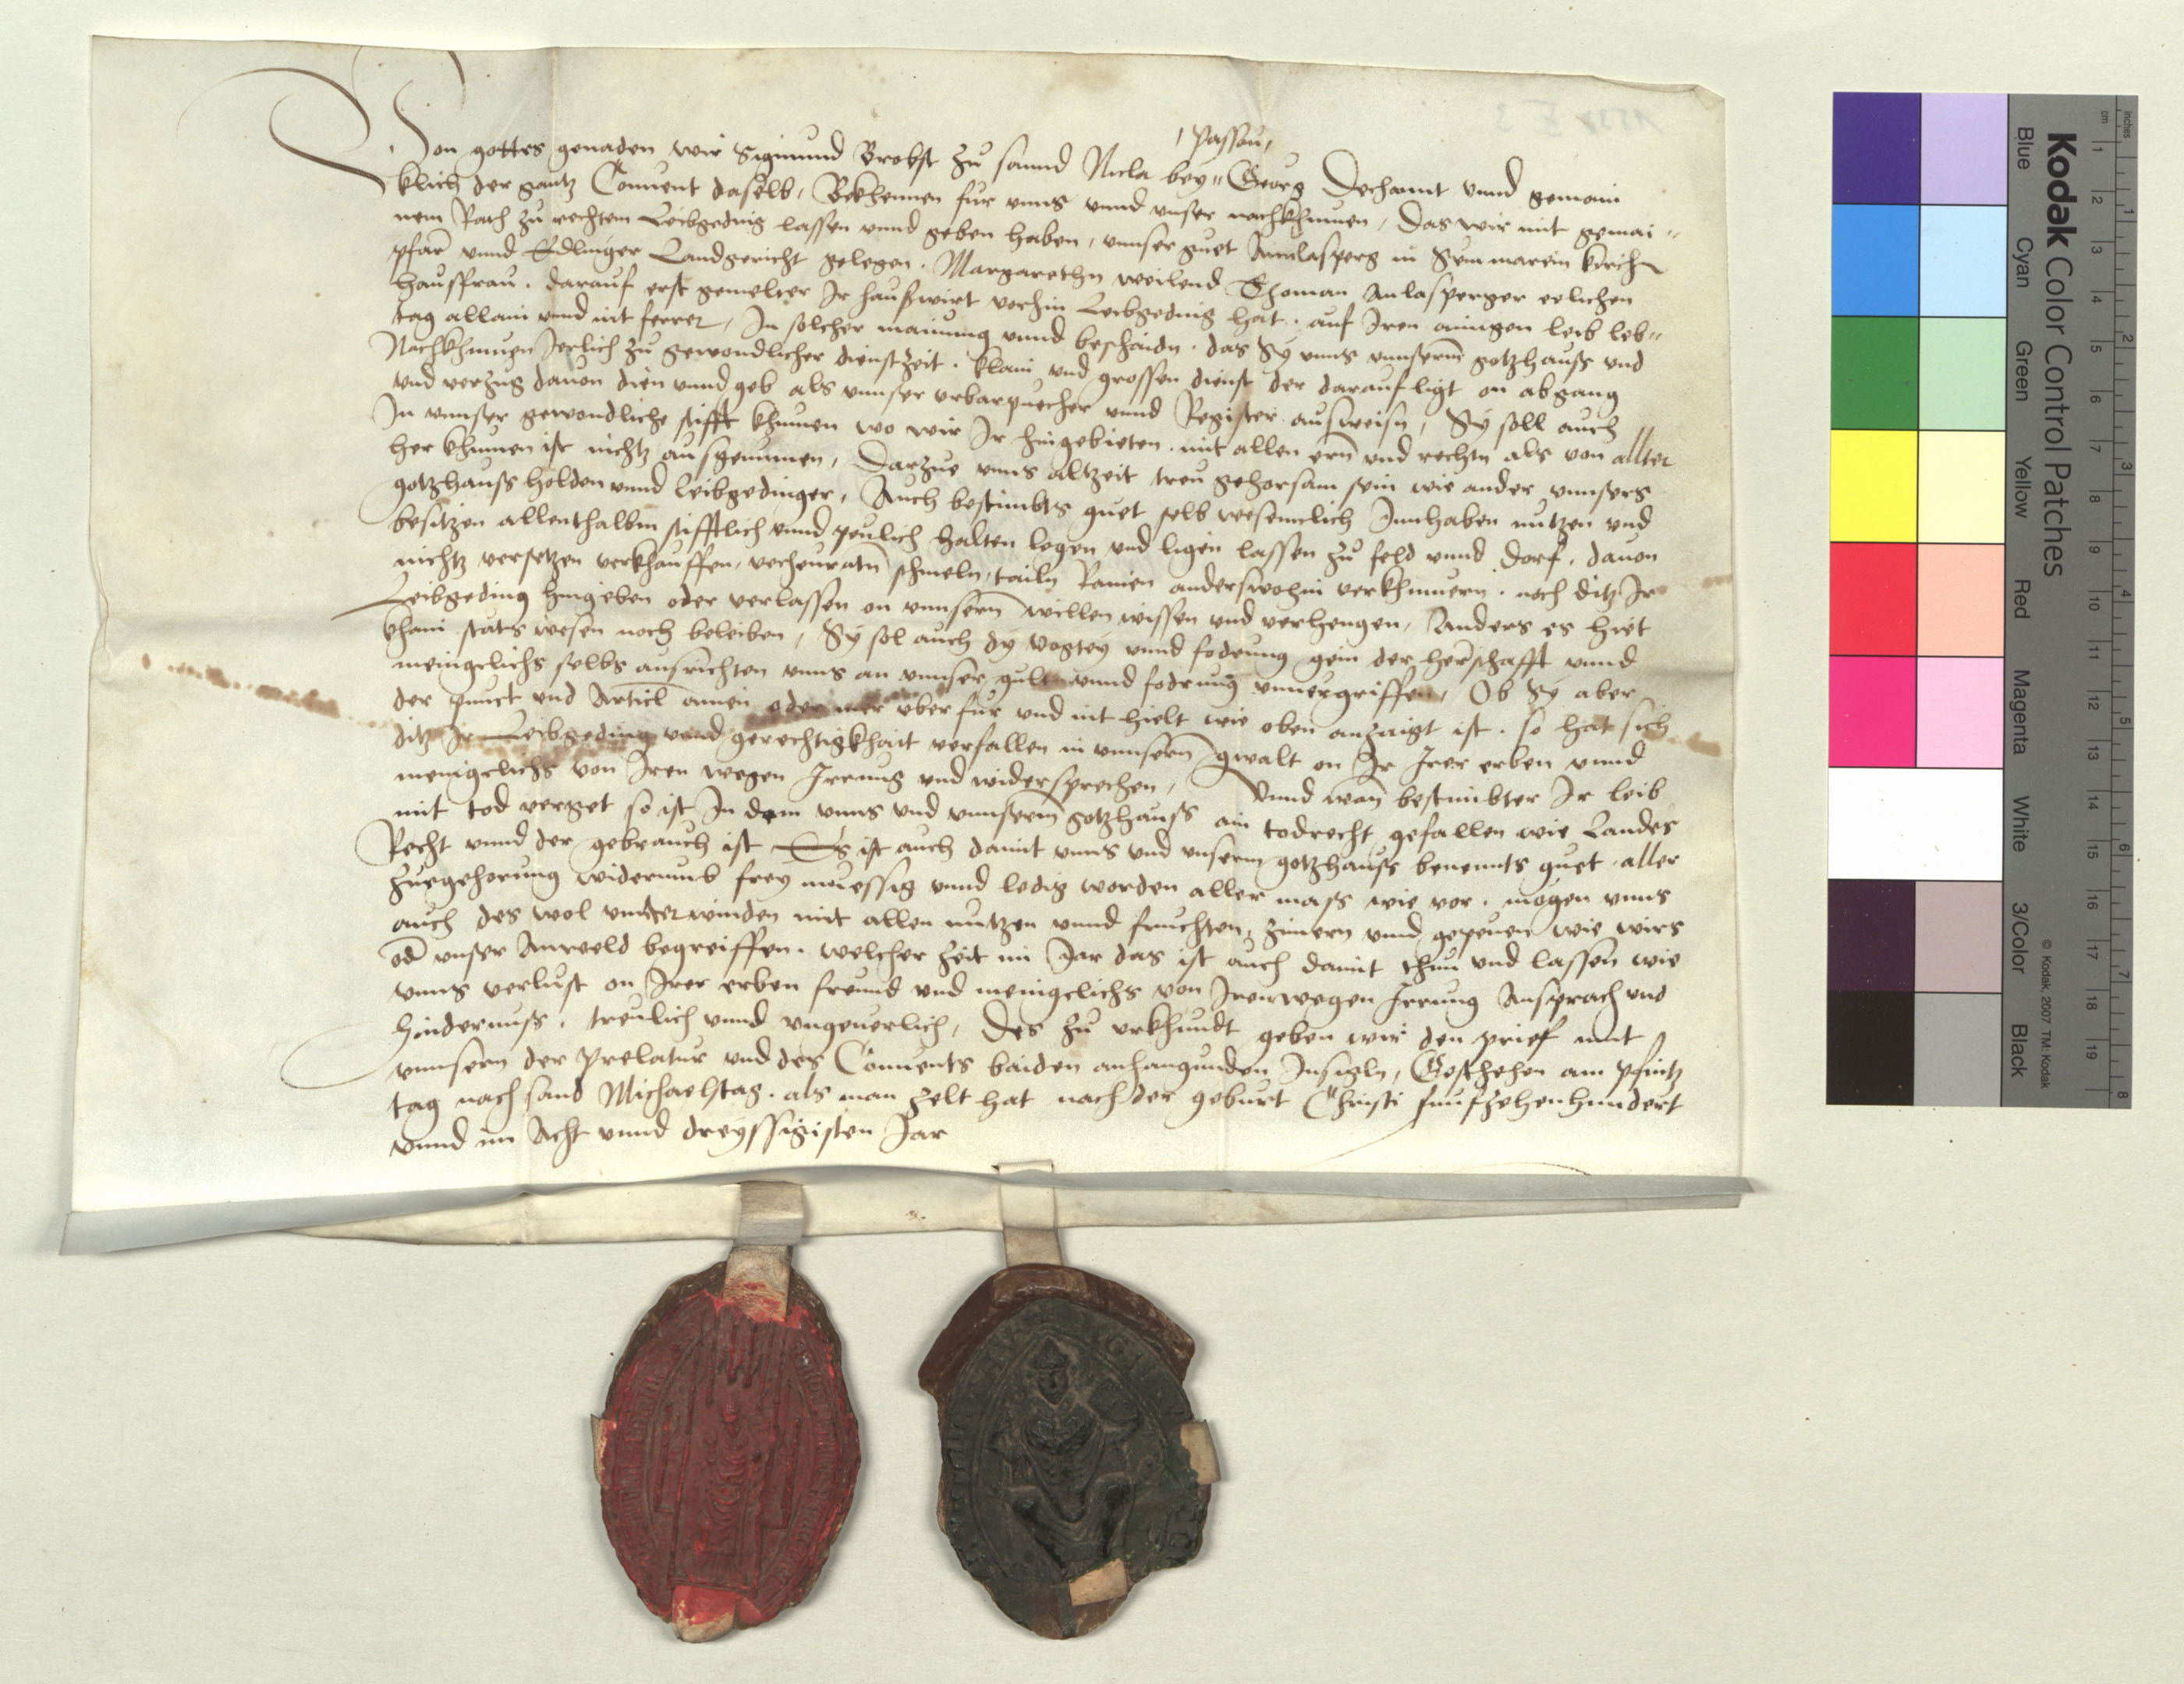 Von gottes genaden wir Sigmund Brobst zu sannd Nicla bey /Passau/ Georg Dechannt vnnd gemain
klich der gantz Conuent daselb, Bekhennen fur vnns vnnd vnser nachkhumen, Das wir mit gemai=
nem Rath zu rechtem Leibgeding lassen vnnd geben haben, vnnser guet Amlasperg in Sannmarein kirch
pfar vnnd Edlinger Landgericht gelegen. Margarethn weilend Thoman Amlasperger eelichen
hausfrau. darauf erst gemelter Ir hauswirt vorhin Leibgeding hat. auf Iren ainigen leib leb=
tag allain vnnd nit ferrer, In solcher mainung vnnd beschaidn. das Sy vnns vnnserm gotzhauss vnd
Nachkhumen Jerlich zu gewondlicher dienstzeit. klain vnd grossen dienst der darauf ligt on abgang
vnd verzug dauon dien vnnd geb als vnnser vrbarpuecher vnnd Register ausweisn, Sy soll auch
In vnnser gewondliche stifft khumen wo wir Ir hingebieten. mit allen ern vnd rechtn als von allter
her khumen ist nichtz ausgenumen, Darzue vnns altzeit treu gehorsam sein wie ander vnnsers
gotzhauss holden vnnd leibgedinger, Auch bestimbts guet selb wesennlich Innhaben nutzen vnd
besitzen allenthalbm stifftlich vnnd peulich halten legen vnd ligen lassen zu feld vnnd dorf. dauon
nichtz versetzen verkhauffen, verheuratn schmeln, tailn Rainen anderswohin verkhumern. noch ditz Ir
Leibgeding hingeben oder verlassen on vnnsern willen wissen vnd verhengen, Anders es hiet
khain stats wesen noch beleiben, Sy sol auch dy vogtey vnnd fodrung gein der herschafft vnnd
menigclichs selbs ausrichten vnns an vnnser gult vnnd fodrung vnuergriffen, Ob Sy aber
der punct vnd Articl ainen oder mer vberfur vnd nit hielt wie oben anzaigt ist. so hat sich
ditz Ir Leibgeding vnnd gerechtigkhait verfallen in vnnsern gwalt on Ir Irer erben vnnd
menigclichs von Iren wegen Irrung vnd widersprechen, Vnnd wan bestimbter Ir leib
mit tod verget so ist In dem vnns vnd vnnserm gotzhauss ain todrecht gefallen wie Landes
Recht vnnd der gebrauch ist Es ist auch damit vnns vnd vnserm gotzhauss benennts guet. aller
zuegehorung widerumb frey muessig vnnd ledig worden aller mass wie vor. mogen vnns
auch des wol vnnterwinden mit allen nutzen vnnd fruchten, zimern vnnd gepeuen wie wirs
od vnser Anweld begreiffen. welcher zeit im Jar das ist auch damit thun vnd lassen wie
vnns verlust on Irer erben freund vnd menigclichs von Irenwegen Irrung Ansprach vnd
hindernuss, treulich vnnd vngeuerlich, Des zu vrkhundt geben wir den prief mit
vnnsern der Prelatur vnd des Conuents baiden anhangunden Insigln, Geschehen am Pfintz
tag nach sand Michaelstag. als man zelt hat nach der geburt Christi funfzehenhundert
vnnd im Acht vnnd dreyssigisten Jar
Kodak Color Control Patches
Blue Cyan Green Yellow Red Magenta White 3/Color Black
© Kodak, 2007 TM: Kodak
cm 1 2 3 4 5 6 7 8 9 10 11 12 13 14 15 16 17 18 19
inches 1 2 3 4 5 6 7 8